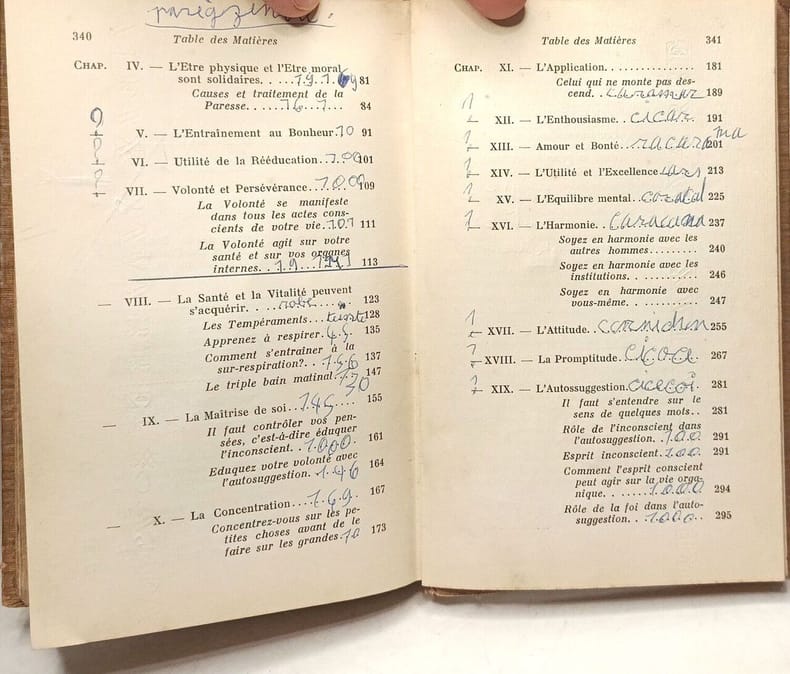 340
Table des Matières
CHAP. IV. — L'Etre physique et l'Etre moral
sont solidaires. . . . . 81
Causes et traitement de la
Paresse. . . . . 84
V. — L'Entraînement au Bonheur. 10 91
VI. — Utilité de la Rééducation. 101
VII. — Volonté et Persévérance. . . . 109
La Volonté se manifeste
dans tous les actes cons-
cients de votre vie. 111
La Volonté agit sur votre
santé et sur vos organes
internes. . . 113
— VIII. — La Santé et la Vitalité peuvent
s'acquérir. . . 123
Les Tempéraments. . . 128
Apprenez à respirer. 135
Comment s'entraîner à la
sur-respiration?. . . 137
Le triple bain matinal. 147
— IX. — La Maîtrise de soi. . . 145 155
Il faut contrôler vos pen-
sées, c'est-à-dire éduquer
l'inconscient. . 1.000. 161
Eduquez votre volonté avec
l'autosuggestion. 1.46 164
— X. — La Concentration. . . . 1.69. 167
Concentrez-vous sur les pe-
tites choses avant de le
faire sur les grandes. 10 173
Table des Matières
341
CHAP. XI. — L'Application. . . . . . . . . . . . . . . . 181
Celui qui ne monte pas des-
cend. . 189
XII. — L'Enthousiasme. . 191
XIII. — Amour et Bonté. . 201
XIV. — L'Utilité et l'Excellence 213
XV. — L'Equilibre mental. . 225
XVI. — L'Harmonie. . 237
Soyez en harmonie avec les
autres hommes. . . . . . . . . 240
Soyez en harmonie avec les
institutions. . . . . . . . . . . . 246
Soyez en harmonie avec
vous-même. . . . . . . . . . . . 247
XVII. — L'Attitude. . 255
XVIII. — La Promptitude. . 267
XIX. — L'Autosuggestion. 281
Il faut s'entendre sur le
sens de quelques mots. . 281
Rôle de l'inconscient dans
l'autosuggestion. . 1.00. 291
Esprit inconscient. 1.00. 291
Comment l'esprit conscient
peut agir sur la vie orga-
nique. . . . 1.000. 294
Rôle de la foi dans l'auto-
suggestion. . 1.000. . 295